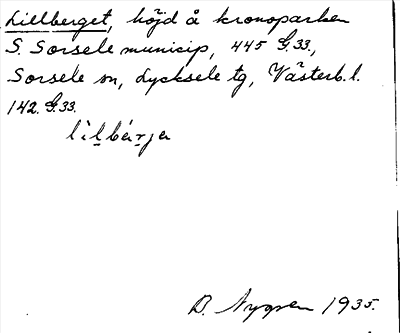 Lillberget, höjd å kronoparken
S. Sorsele municip, 445 G.33,
Sorsele sn, Lycksele tg, Västerb. l.
142. G.33.
lilbärja
1935.